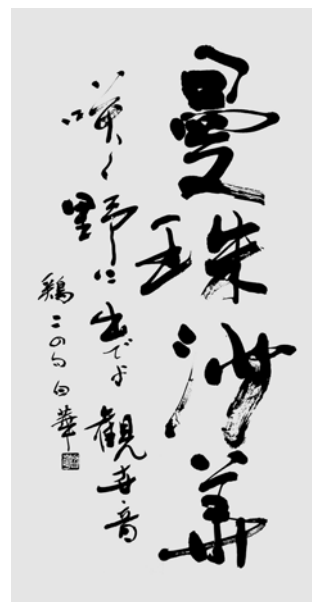 曼珠沙華
咲く野に出でよ観世音
鶏二の句白華